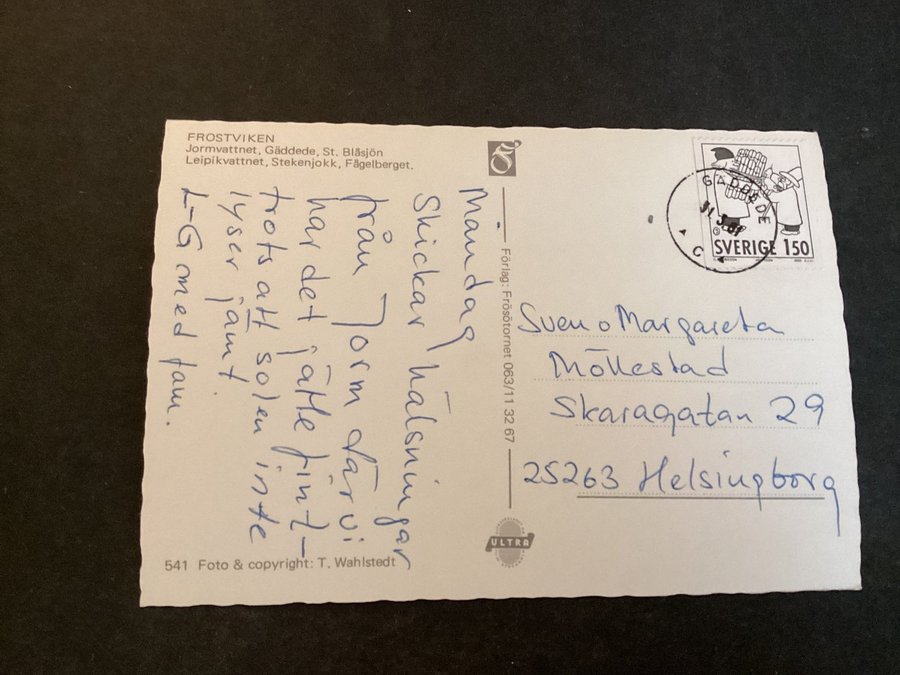 FROSTVIKEN
Jormvattnet, Gäddede, St. Blåsjön
Leipikvattnet, Stekenjokk, Fågelberget.
Måndag
Skickar hälsningar
från Jorm där vi
har det jätte fint –
trots att solen inte
lyser jämt.
L-G med fam.
541 Foto & copyright: T. Wahlstedt
Förlag: Frösötornet 063/11 32 67
ULTRA
GÄDDEDE
SVERIGE 150
Sven o Margareta
Möllestad
Skaragatan 29
25263 Helsingborg